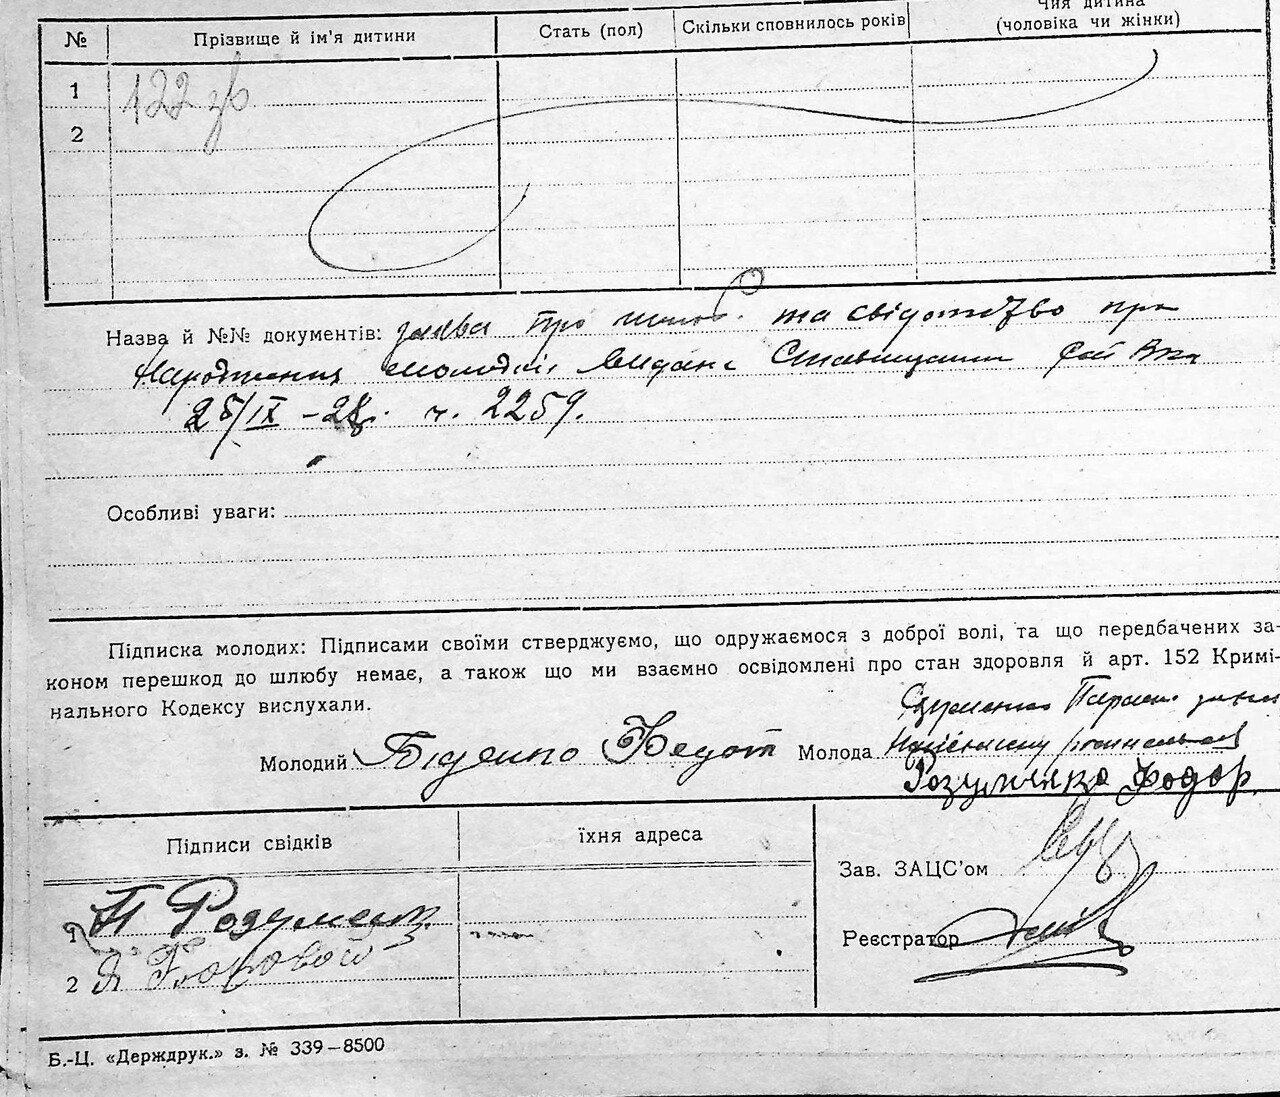 № Прізвище й ім'я дитини Стать (пол) Скільки сповнилось років Чия дитина (чоловіка чи жінки)
1 122 зв
2
Назва й №№ документів: заява про шлюб та свідоцтво про
Народження молодої видане Ставищанським Рай
25/IX – 28р. ч. 2259.
Особливі уваги:
Підписка молодих: Підписами своїми стверджуємо, що одружаємося з доброї волі, та що передбачених за-
коном перешкод до шлюбу немає, а також що ми взаємно освідомлені про стан здоровля й арт. 152 Кримі-
нального Кодексу вислухали.
Молодий Біденко Федот Молода
Розуменко Фодор.
Підписи свідків їхня адреса
Зав. ЗАЦС'ом
1 П Розуменк
Реєстратор
2 Я Боровой
Б.-Ц. «Держдрук.» з. № 339–8500